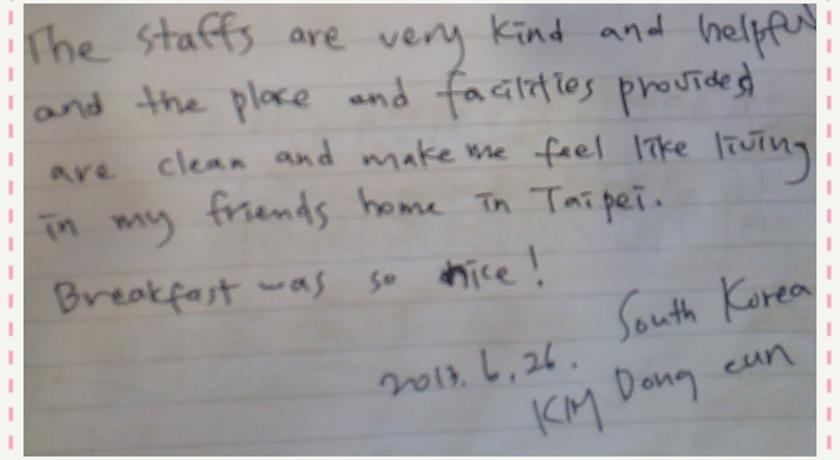 The staffs are very kind and helpful
and the place and facilities provided
are clean and make me feel like living
in my friends home in Taipei.
Breakfast was so nice!
South Korea
2013. 6, 26.
KIM Dong eun